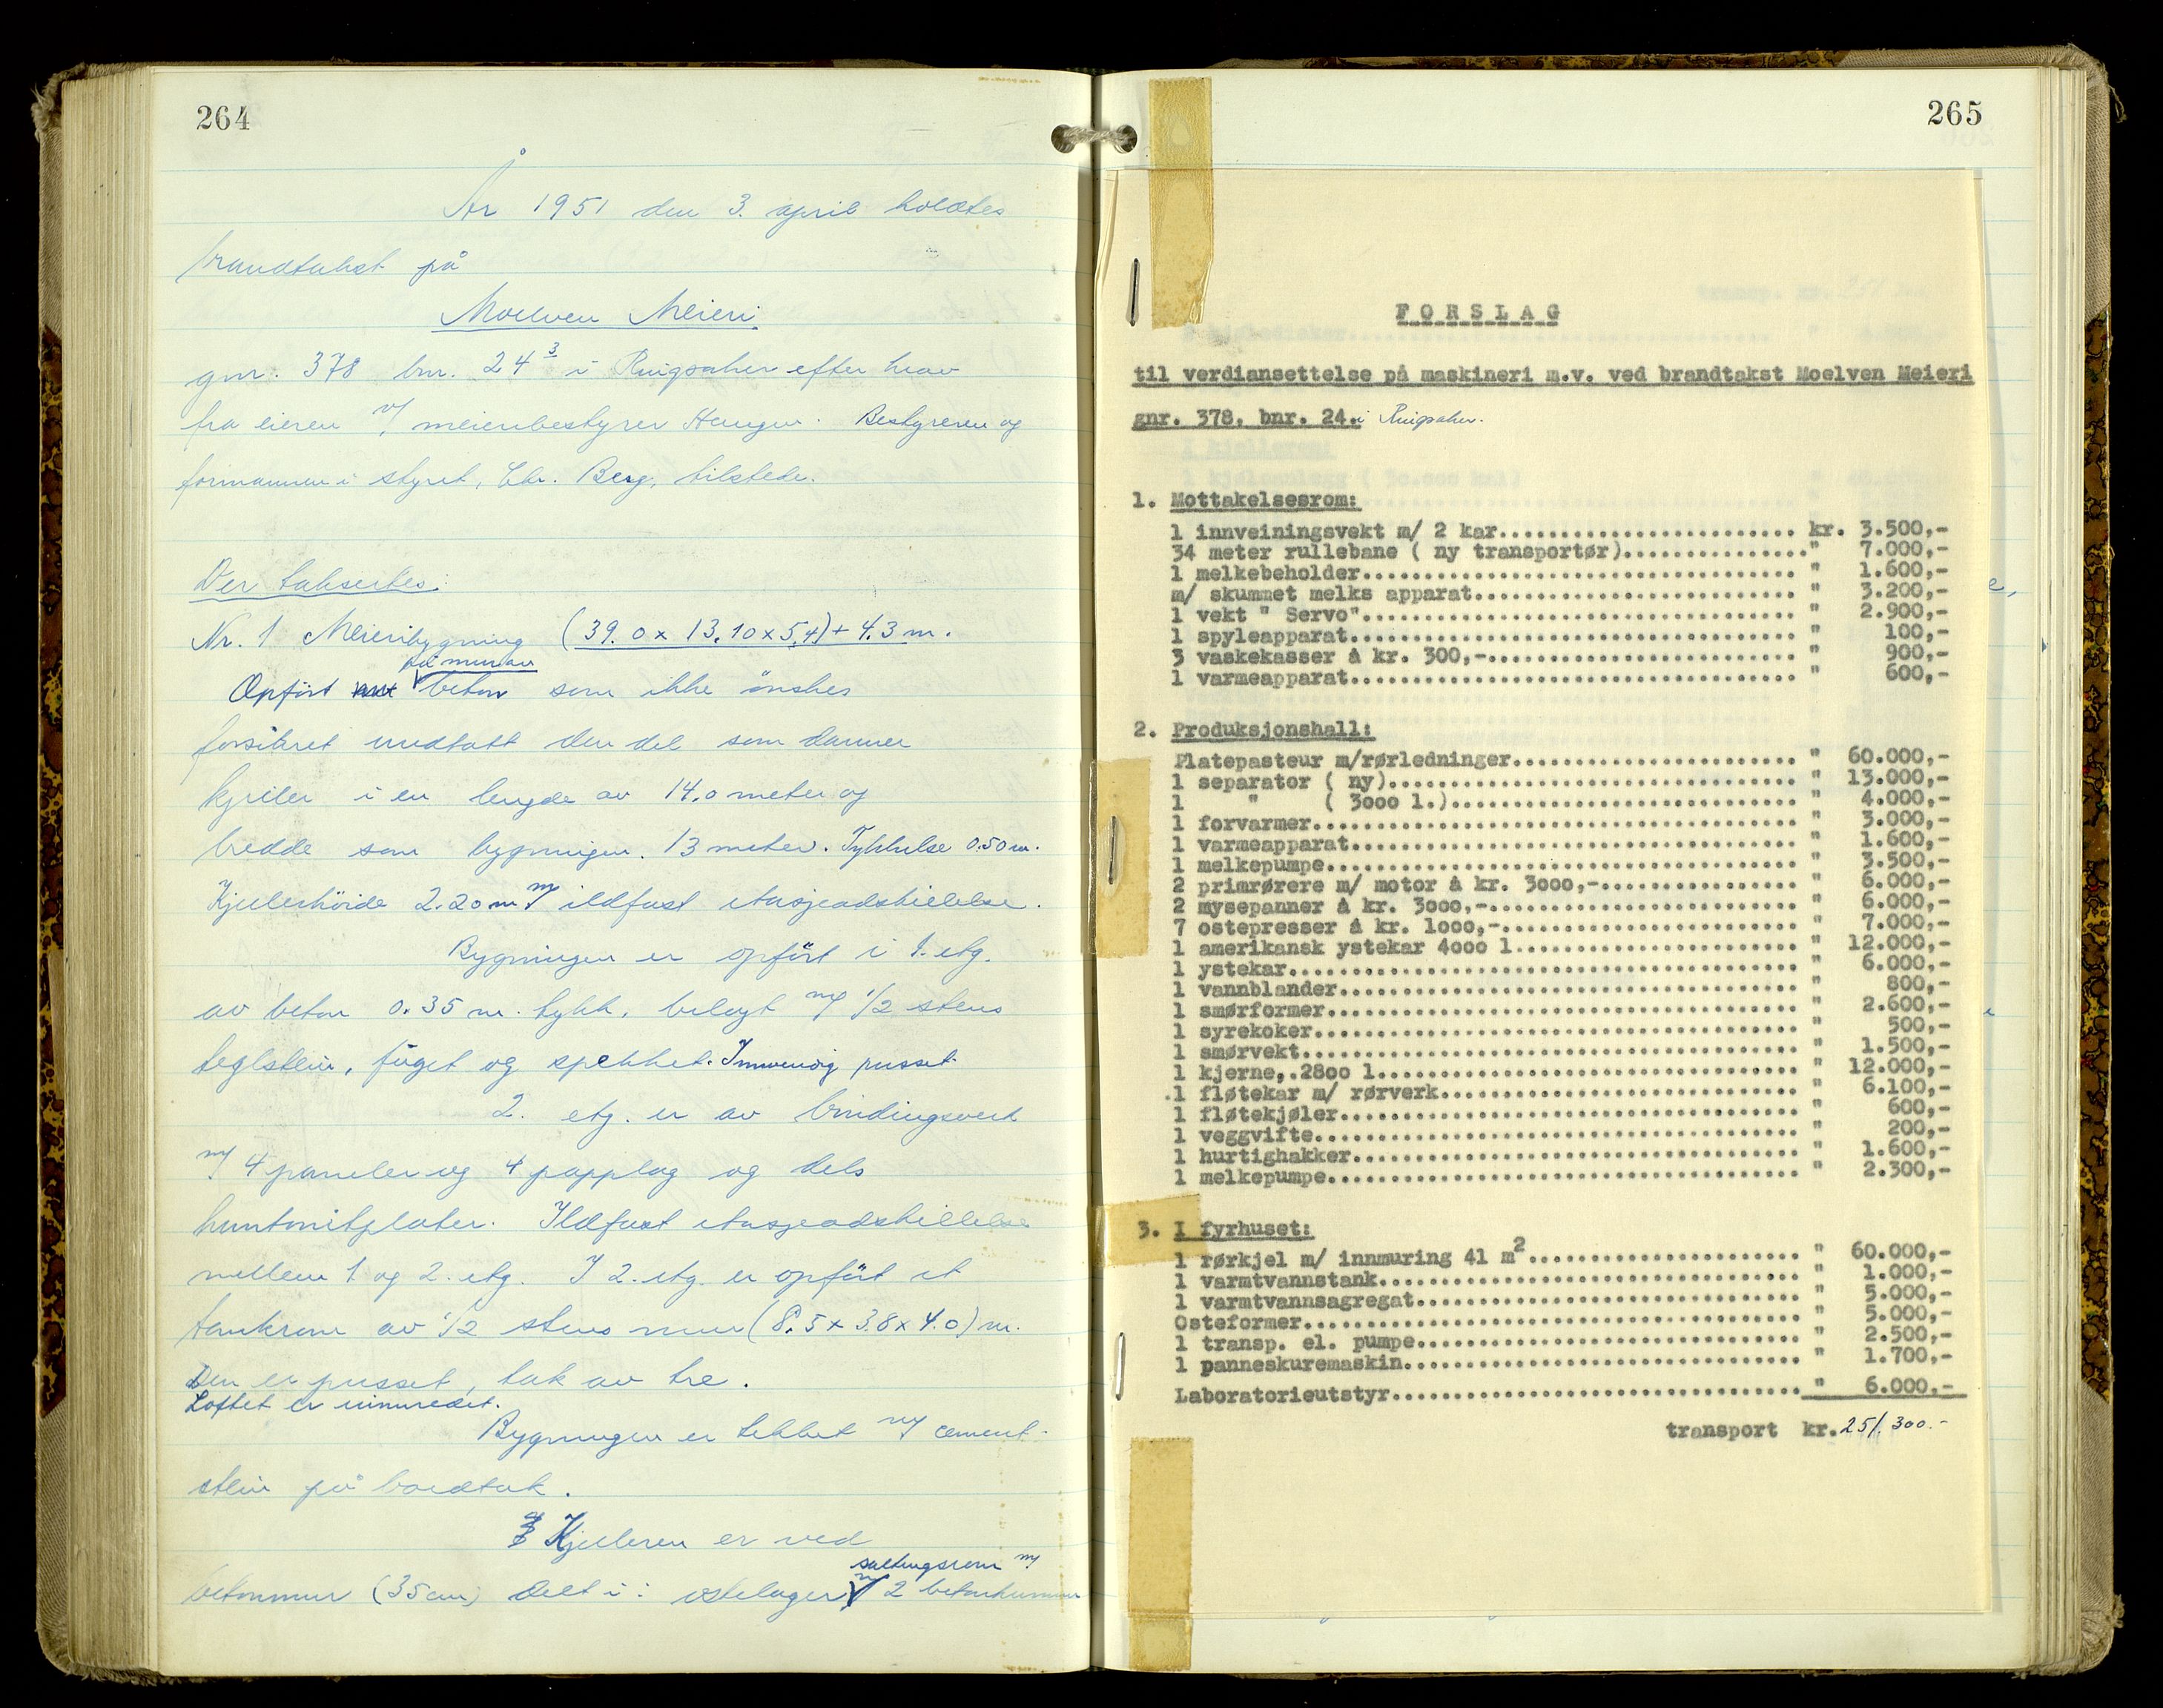 264
År 1951 den 3. april holdtes
brandtakst på
Moelven Meieri
gnr. 378 bnr. 24³ i Ringsaker efter krav
fra eieren v/ meieribestyrer Haugen. Bestyreren og
formannen i styret, Chr. Berg, tilstede.
Der taksertes:
Nr. 1 Meieribygning (39.0 x 13.10 x 5,4) + 4.3 m.
på murer av
Opført beton som ikke ønskes
forsikret undtatt den del som danner
kjeller i en lengde av 14.0 meter og
bredde som bygningen. 13 meter. Tykkelse 0.50 m.
Kjellerhøide 2.20 m m/ ildfast etasjeadskillelse.
Bygningen er opført i 1. etg.
av beton 0.35 m. tykk, belagt m/ 1/2 stens
teglstein, fuget og spekket. Innvendig pusset.
2. etg. er av bindingsverk
m/ 4 paneler og 4 papplag og dels
huntonitplater. Ildfast etasjeadskillelse
mellem 1 og 2. etg. I 2. etg. er opført et
tankrom av 1/2 stens mur (8.5 x 3.8 x 4.0) m.
Den er pusset, tak av tre.
Loftet er uinnredet.
Bygningen er tekket m/ cement-
stein på bordtak.
Kjelleren er ved
saltingsrom m/
betonmur (35 cm) delt i: ostelager m/ 2 betonkummer
265
FORSLAG
til verdiansettelse på maskineri m.v. ved brandtakst Moelven Meieri
gnr. 378, bnr. 24. i Ringsaker.
1. Mottakelsesrom:
1 innveiningsvekt m/ 2 kar.......................... kr. 3.500,-
34 meter rullebane ( ny transportør)................" 7.000,-
1 melkebeholder................................... " 1.600,-
m/ skummet melks apparat.......................... " 3.200,-
1 vekt " Servo"................................... " 2.900,-
1 spyleapparat.................................... " 100,-
3 vaskekasser á kr. 300,-......................... " 900,-
1 varmeapparat.................................... " 600,-
2. Produksjonshall:
Platepasteur m/rørledninger....................... " 60.000,-
1 separator ( ny)................................. " 13.000,-
1 " ( 3000 l.)............................ " 4.000,-
1 forvarmer....................................... " 3.000,-
1 varmeapparat.................................... " 1.600,-
1 melkepumpe...................................... " 3.500,-
2 primrørere m/ motor á kr. 3000,-................ " 6.000,-
2 mysepanner á kr. 3000,-......................... " 6.000,-
7 ostepresser á kr. 1000,-........................ " 7.000,-
1 amerikansk ystekar 4000 l....................... " 12.000,-
1 ystekar......................................... " 6.000,-
1 vannblander..................................... " 800,-
1 smørformer...................................... " 2.600,-
1 syrekoker....................................... " 500,-
1 smørvekt........................................ " 1.500,-
1 kjerne,.2800 l.................................. " 12.000,-
1 fløtekar m/ rørverk............................. " 6.100,-
1 fløtekjøler..................................... " 600,-
1 veggvifte....................................... " 200,-
1 hurtighakker.................................... " 1.600,-
1 melkepumpe...................................... " 2.300,-
3. I fyrhuset:
1 rørkjel m/ innmuring 41 m²...................... " 60.000,-
1 varmtvannstank.................................. " 1.000,-
1 varmtvannsagregat............................... " 5.000,-
Osteformer........................................ " 5.000,-
1 transp. el. pumpe............................... " 2.500,-
1 panneskuremaskin................................ " 1.700,-
Laboratorieutstyr................................. " 6.000,-
transport kr. 251.300.-